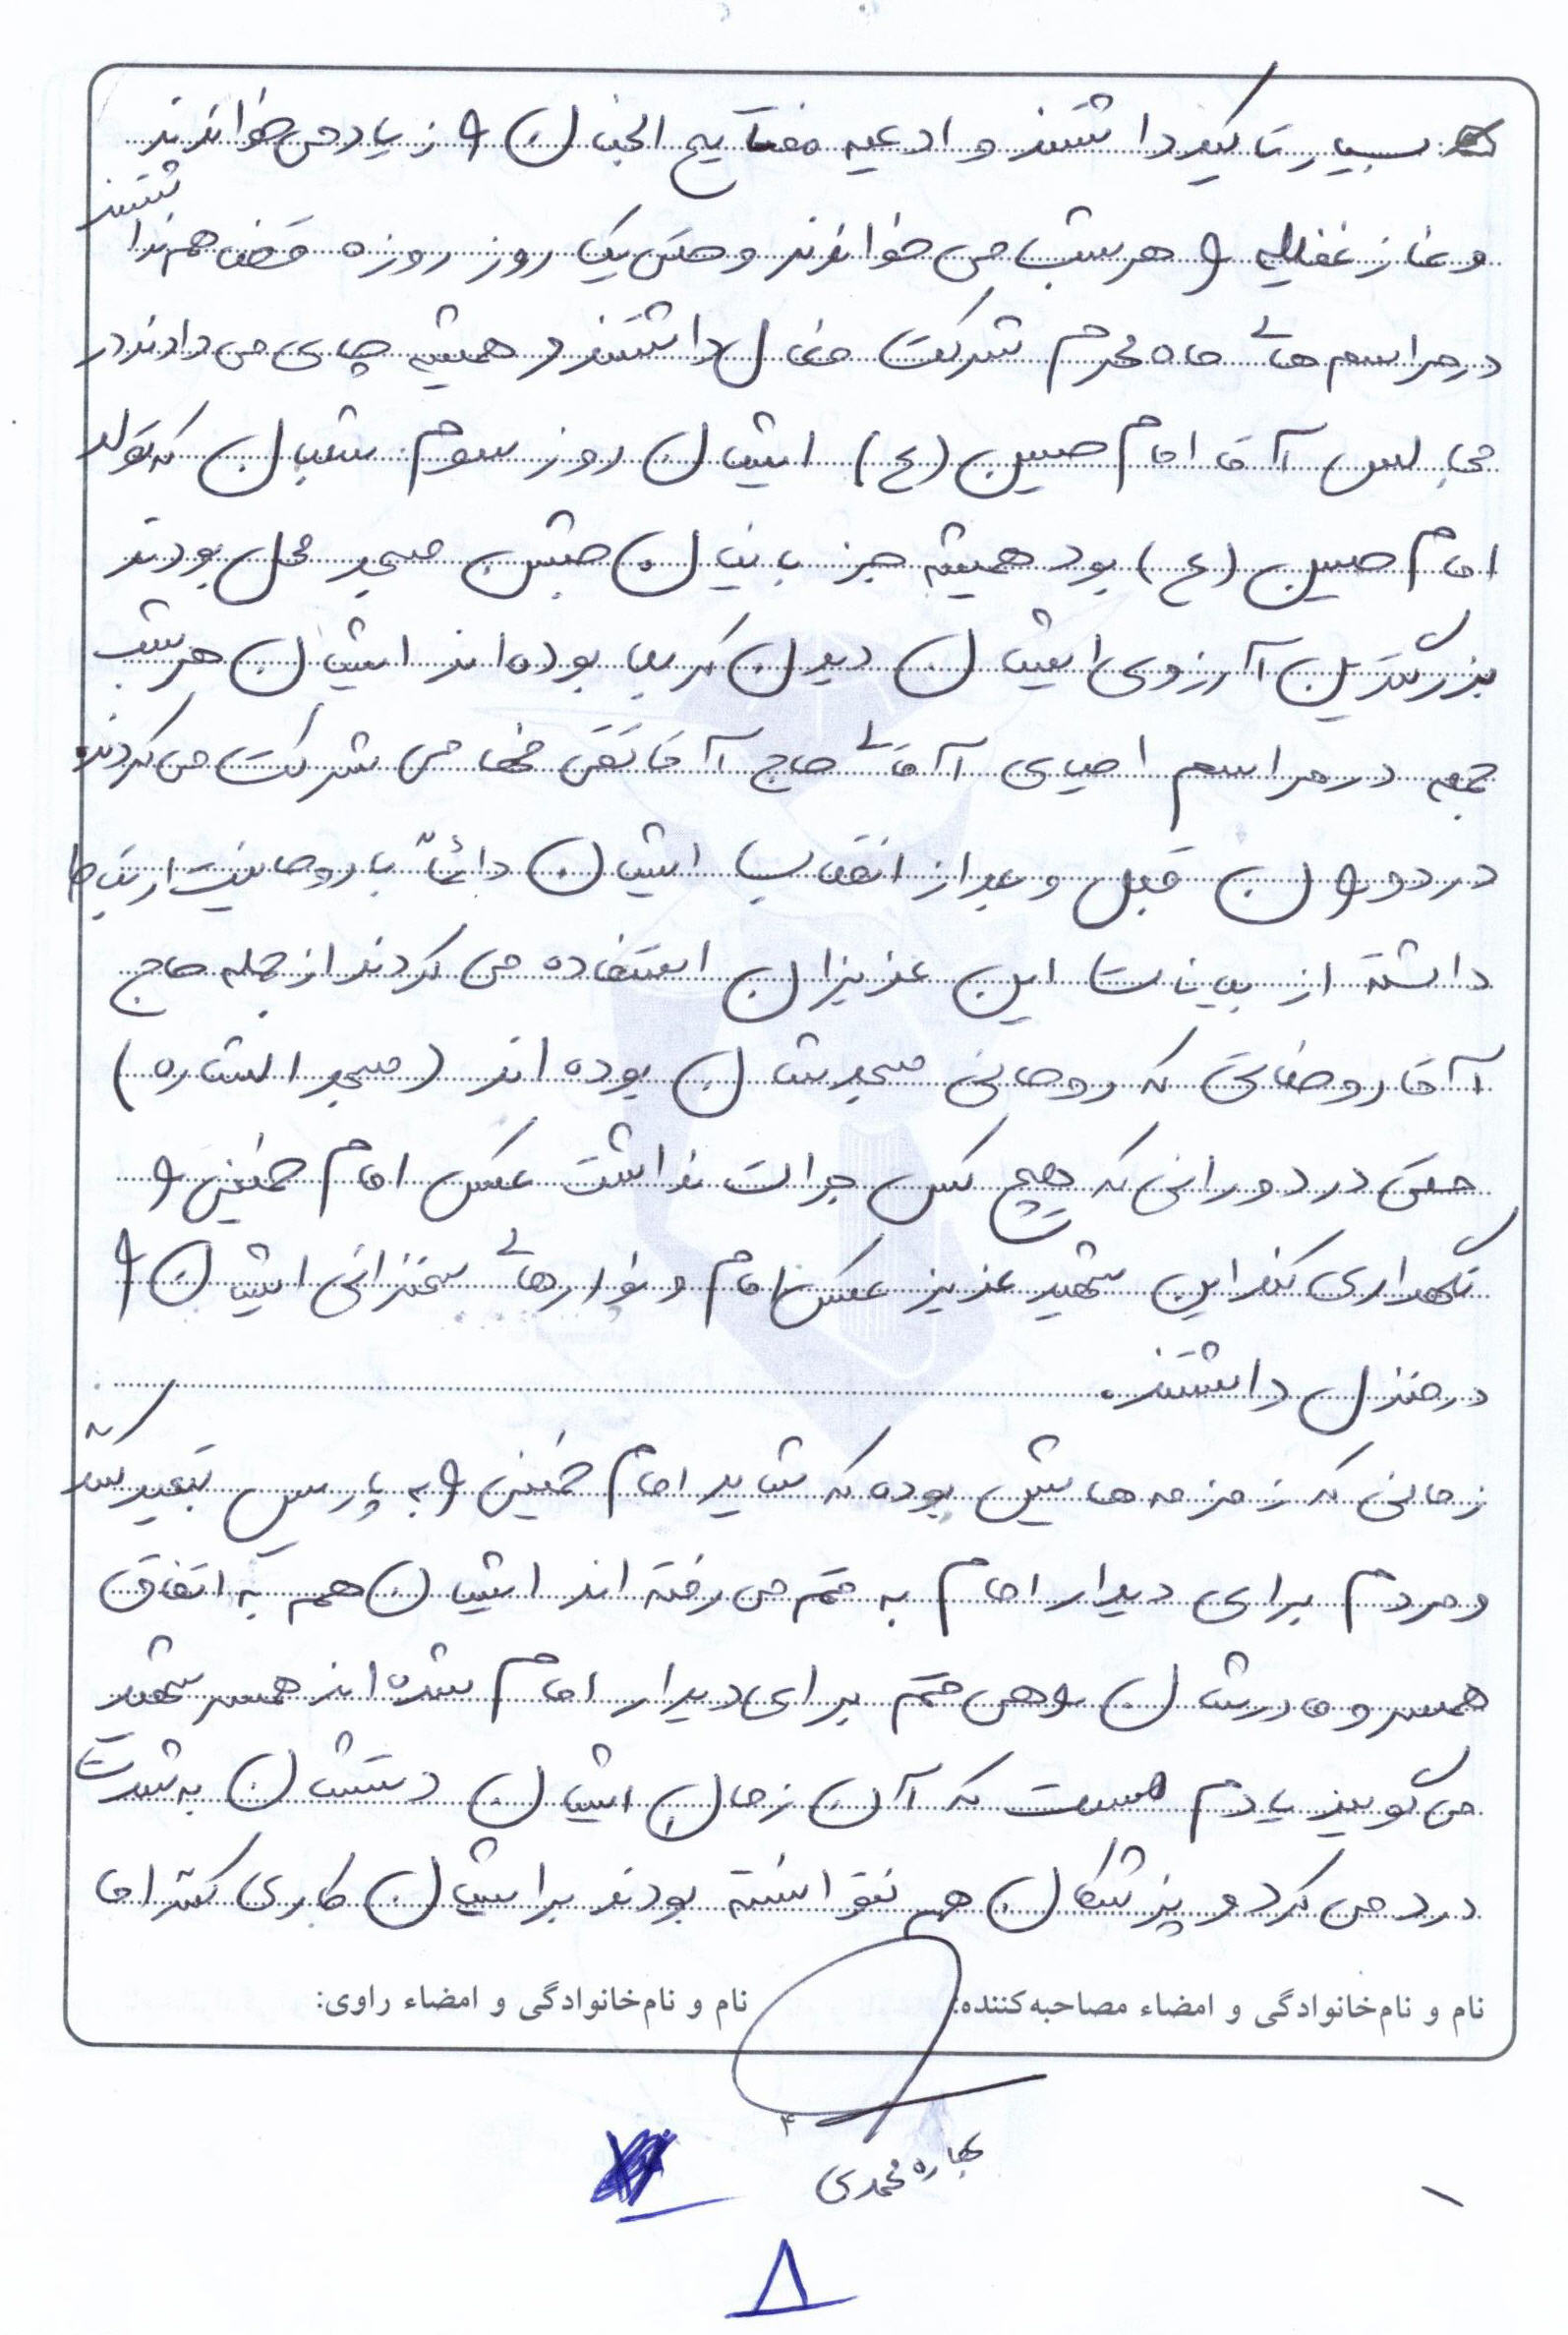 بسیار تاکید داشتند و ادعیه مفتاتیح الجنان را زیاد می خواندند
و نماز غفلیه را هر شب می خواندند و حتی یک روز روزه قضا هم نداشتند
در مراسم های ماه محرم شرکت فعال داشتند و همیشه چای می دادند در
مجالس آقا امام حسین (ع) ایشان روز سوم شعبان که تولد
امام حسین (ع) بود همیشه جز بانیان جشن مسجد محل بودند
بزرگترین آرزوی ایشان دیدن کربلا بوده اند ایشان هر شب
جمعه در مراسم احیای آقای حاج آقا تقی می شرکت می کردند.
در دوران قبل و بعد از انقلاب ایشان دائماً با روحانیت ارتباط
داشته از بیانات این عزیزان استفاده می کردند از جمله حاج
آقا روضاتی که روحانی مسجدشان بوده اند (مسجد الشاره)
حتی در دورانی که هیچ کس جرات نداشت عکس امام خمینی را
نگهداری کند این شهید عزیز عکس امام و نوارهای سخنرانی ایشان را
در منزل داشتند.
زمانی که زمزمه هایش بوده که شاید امام خمینی را به پاریس تبعید کنند
و مردم برای دیدار امام به قم می رفته اند ایشان هم به اتفاق
همسر و مادرشان راهی قم برای دیدار امام شده اند همسر شهید
می گویند یادم هست که آن زمان ایشان دستشان به شدت
درد می کرد و پزشکان هم نتوانسته بودند برایشان کاری کنند اما
نام و نام خانوادگی و امضاء مصاحبه کننده: نام و نام خانوادگی و امضاء راوی:
بهاره محمدی
۸